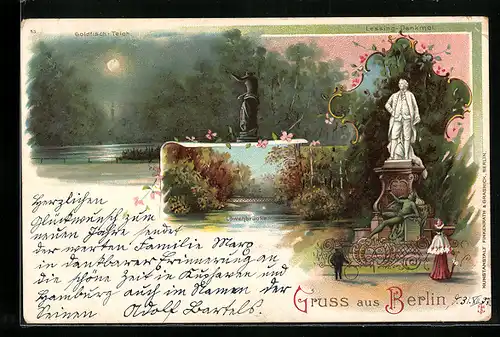 Goldfisch-Teich
Lessing-Denkmal.
Löwenbrücke
KUNSTANSTALT FINKENRATH & GRASNICK, BERLIN.
Herzlichen
Glückwunsch zum
neuen Jahre sendet
der werten Familie
in dankbarer Erinnerung an
die schöne Zeit in Cuxhaven und
Hamburg auch im Namen der
Seinen Adolf Bartels.
Gruss aus Berlin